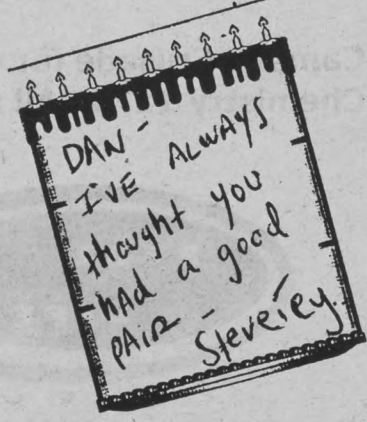 DAN-
I'VE ALWAYS
thought you
hAd a good
PAIR -
Steverey.